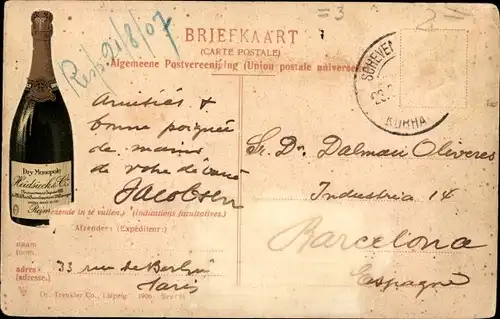 =3
BRIEFKAART
(CARTE POSTALE)
Algemeene Postvereeniging (Union postale universelle)
SCHEVEN
KURHA
Dry Monopole
Heidsieck & Co
Reims
Amitiés &
bonne poignée
de mains
de votre dévoué
Jacobsen
Sr. Dn. Dalmau Oliveres
Industria 14
Barcelona
Espagne
in te vullen. (indications facultatives.)
Afzender: (Expéditeur:)
naam
(nom.
adres
(adresse.)
33 rue de Berlin
Paris
Dr. Trenkler Co., Leipzig 1906